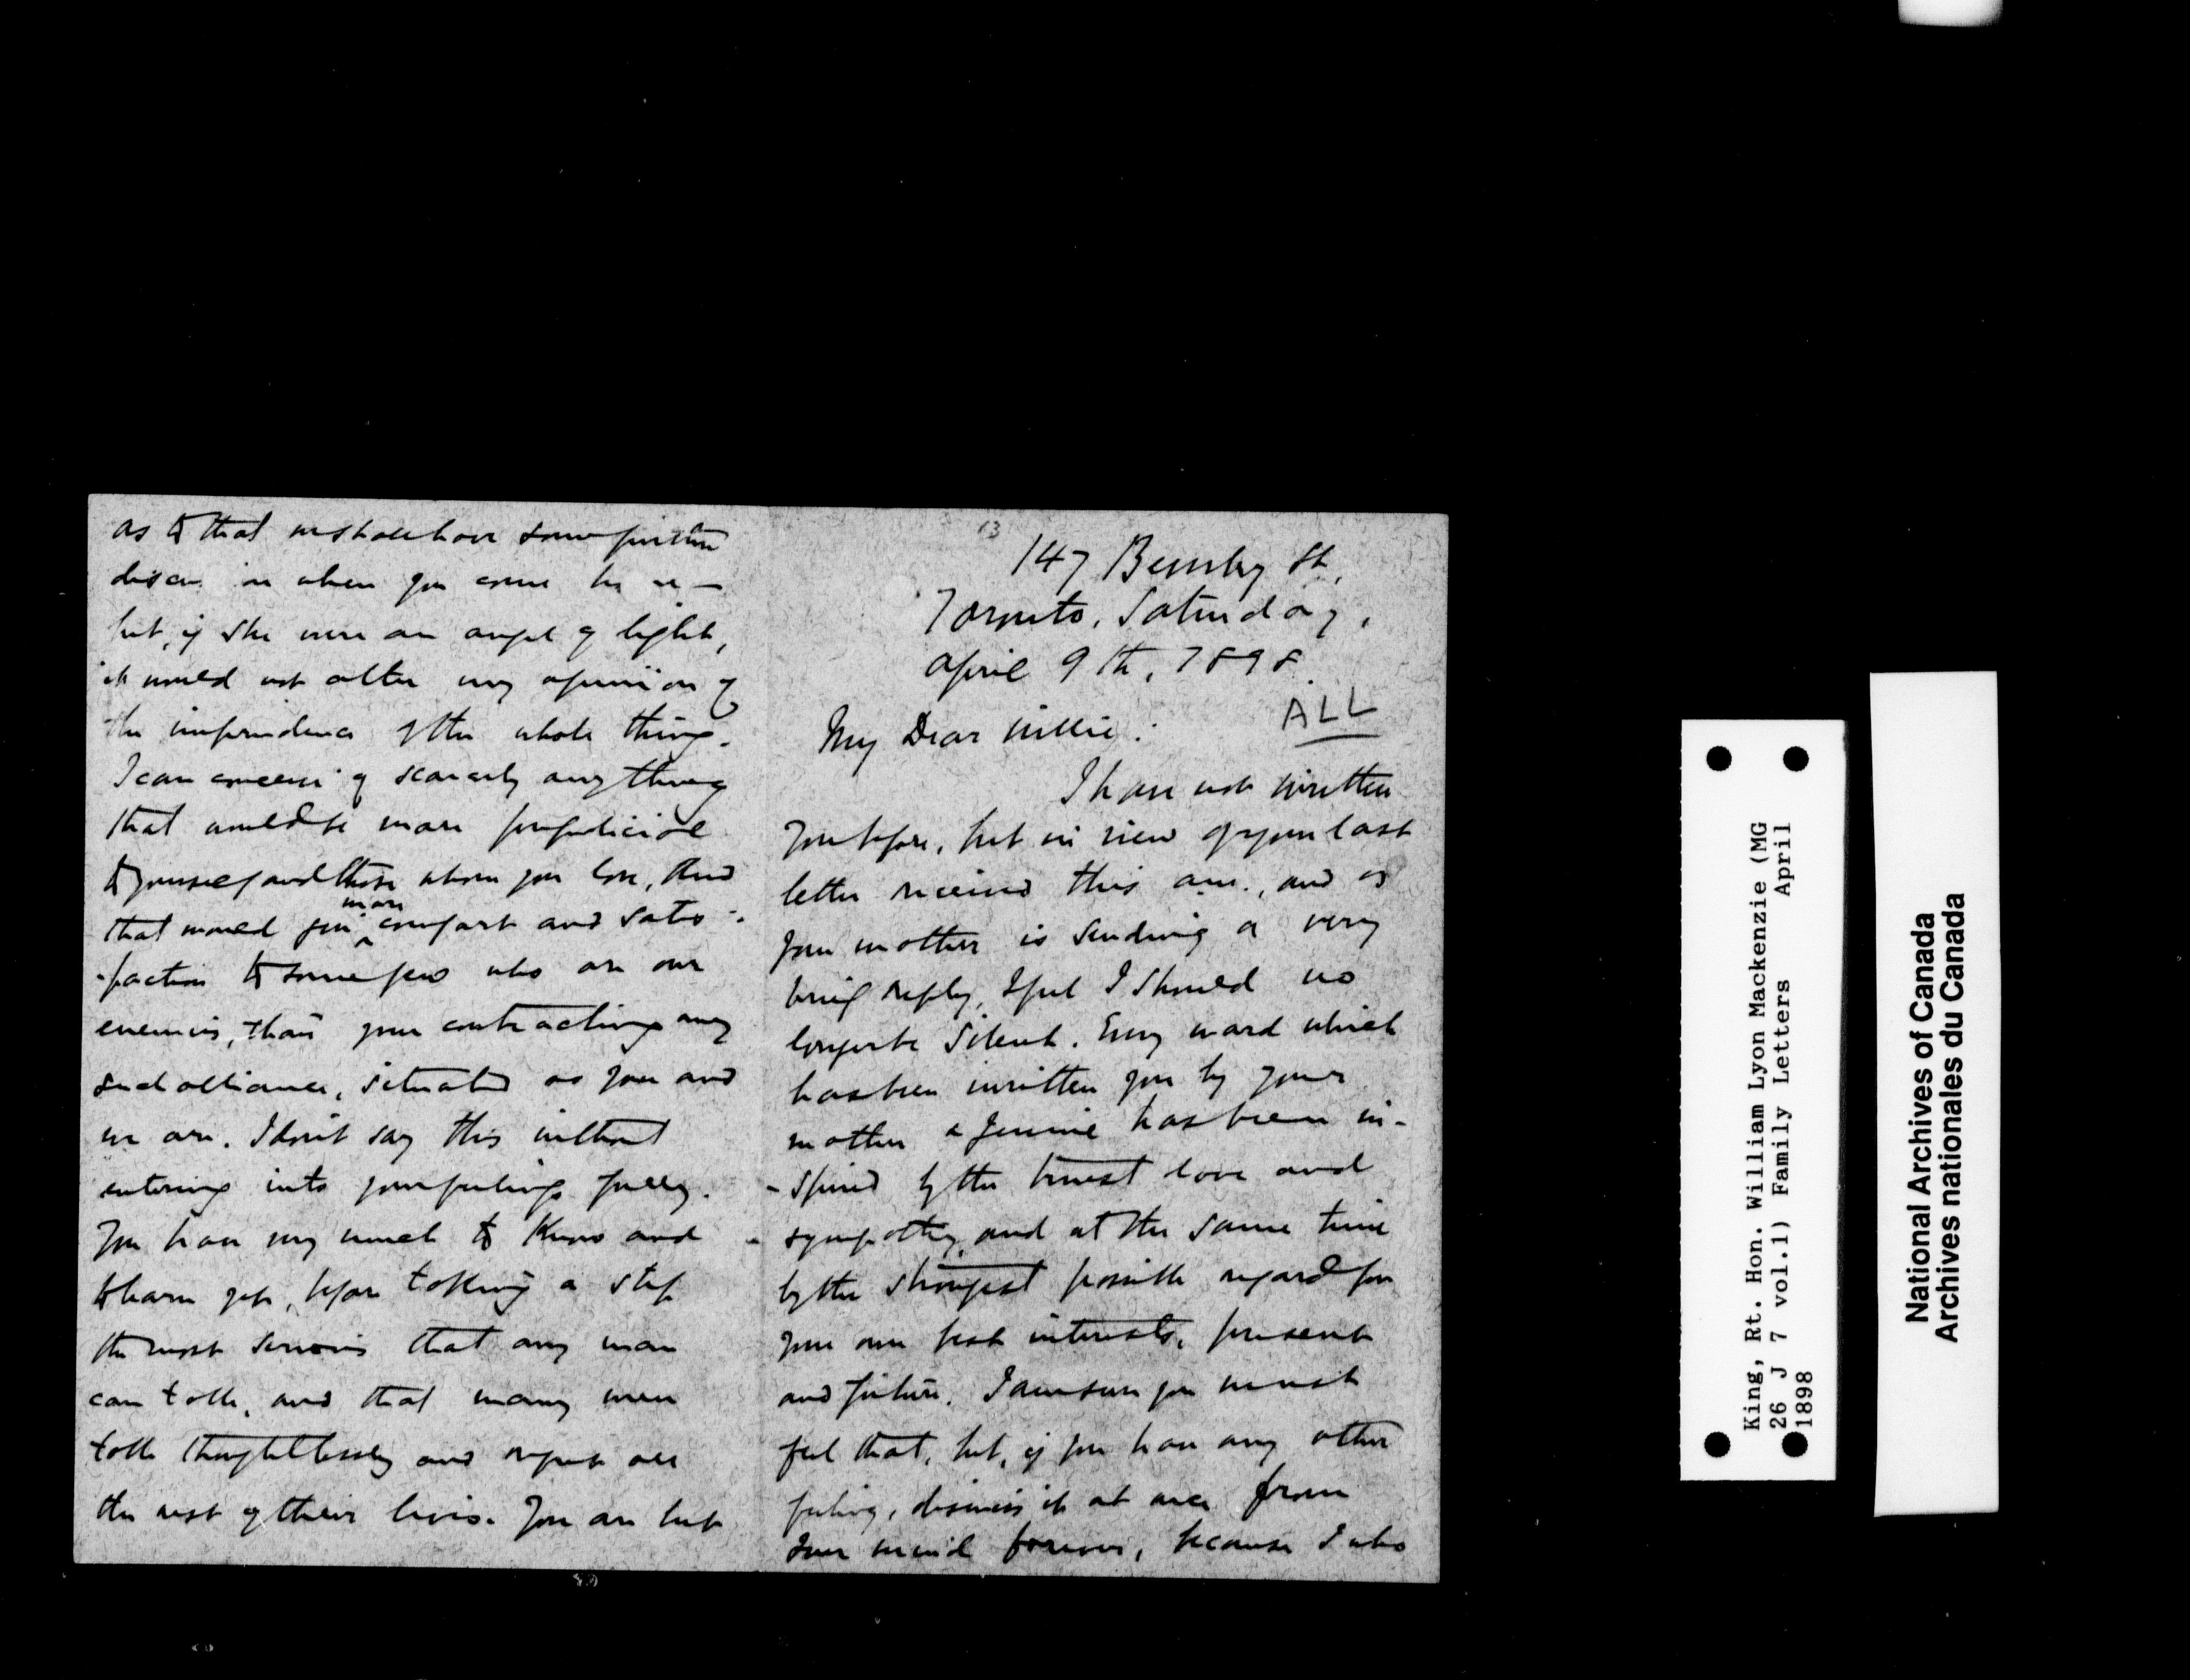 as to that we shall have some further
discussion when you come to us —
but, if she were an angel of light,
it would not alter my opinion of
the imprudence of the whole thing.
I can conceive of scarcely anything
that would be more prejudicial
to yourself and those whom you love, and
that would give more comfort and satis-
-faction to some few who are our
enemies, than your contracting any
such alliance, situated as you and
we are. I don't say this without
entering into your feelings fully.
You have very much to know and
to learn yet, before taking a step
the most serious that any man
can take, and that many men
take thoughtlessly and repent all
the rest of their lives. You are but
13
147 Beverley St,
Toronto, Saturday,
April 9th, 1898.
ALL
My Dear Willie:
I have not written
you before, but in view of your last
letter received this a.m., and as
your mother is sending a very
brief reply, I feel I should no
longer be silent. Every word which
has been written you by your
mother & Jennie has been in-
-spired by the truest love and
sympathy, and at the same time
by the strongest possible regard for
your own best interests, present
and future. I am sure you must
feel that, but, if you have any other
feeling, dismiss it at once from
your mind forever, because I who
King, Rt. Hon. William Lyon Mackenzie (MG
26 J 7 vol.1) Family Letters April
1898
National Archives of Canada
Archives nationales du Canada